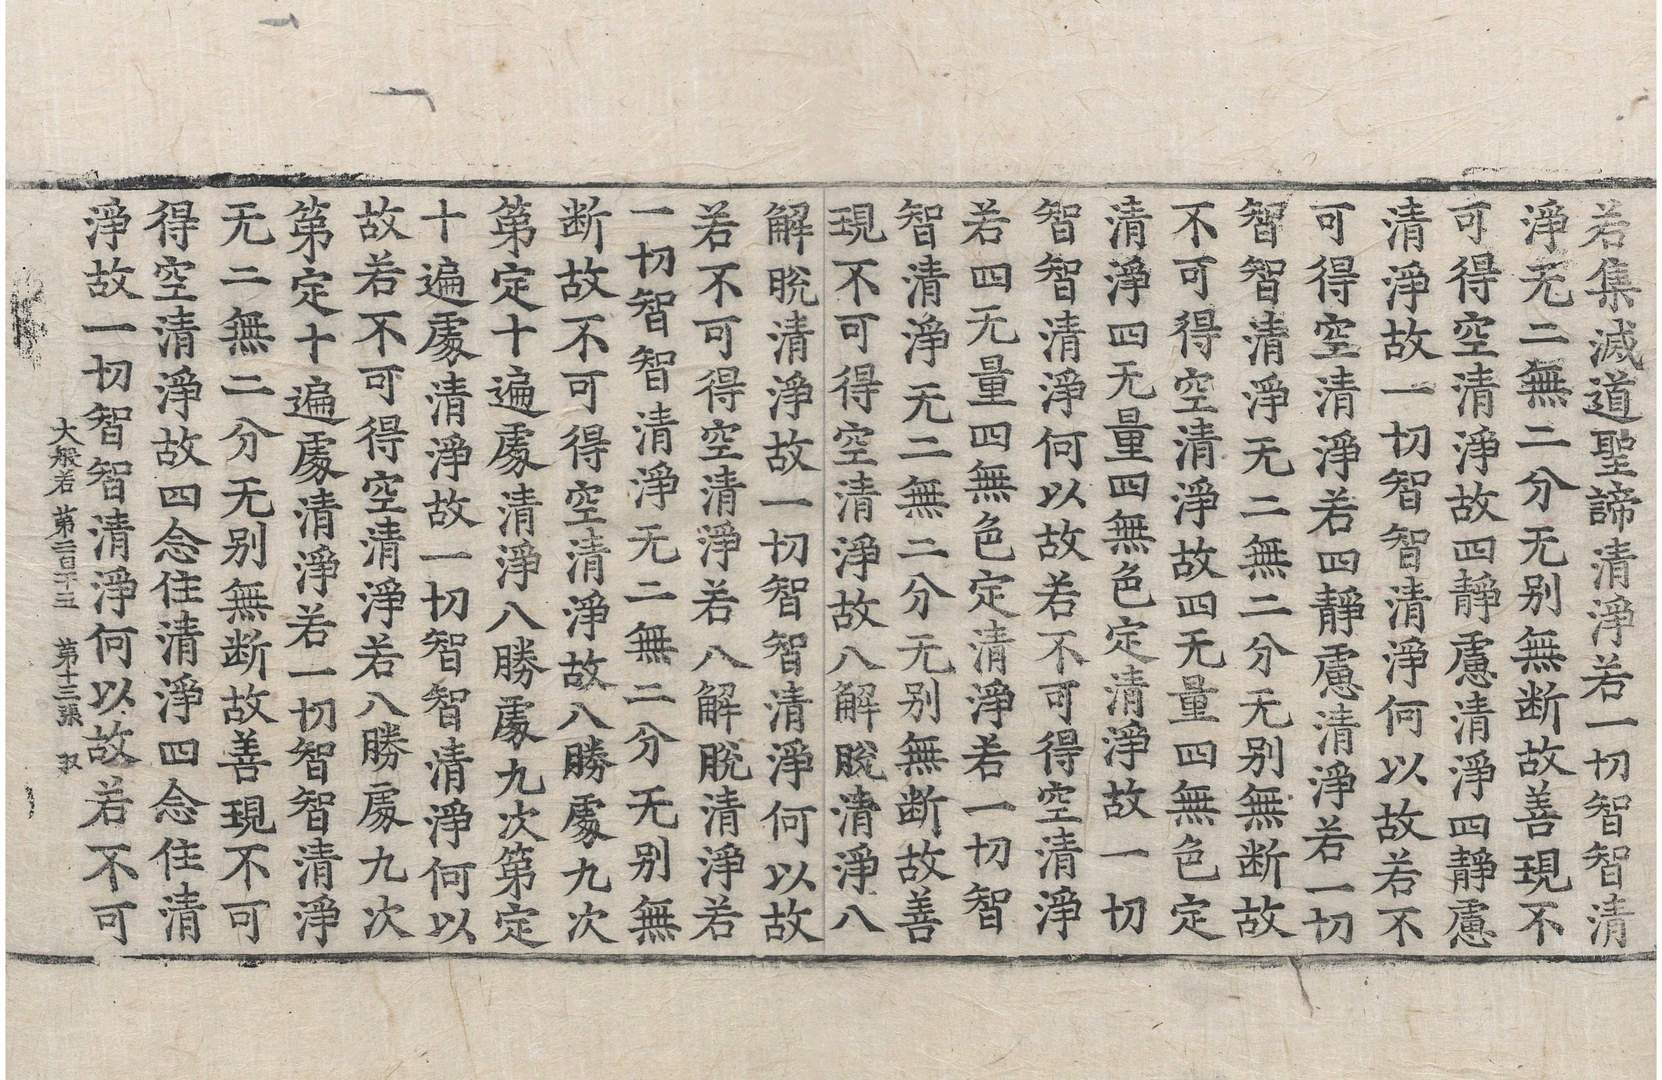 若集滅道聖諦清淨若一切智智清
淨无二無二分无别無断故善現不
可得空清淨故四靜慮清淨四靜慮
清淨故一切智智清淨何以故若不
可得空清淨若四靜慮清淨若一切
智智清淨无二無二分无别無断故
不可得空清淨故四无量四無色定
清淨四无量四無色定清淨故一切
智智清淨何以故若不可得空清淨
若四无量四無色定清淨若一切智
智清淨无二無二分无别無断故善
現不可得空清淨故八解脫清淨八
解脫清淨故一切智智清淨何以故
若不可得空清淨若八解脫清淨若
一切智智清淨无二無二分无别無
断故不可得空清淨故八勝處九次
第定十遍處清淨八勝處九次第定
十遍處清淨故一切智智清淨何以
故若不可得空清淨若八勝處九次
第定十遍處清淨若一切智智清淨
无二無二分无别無断故善現不可
得空清淨故四念住清淨四念住清
淨故一切智智清淨何以故若不可
大般若 第 第十三張